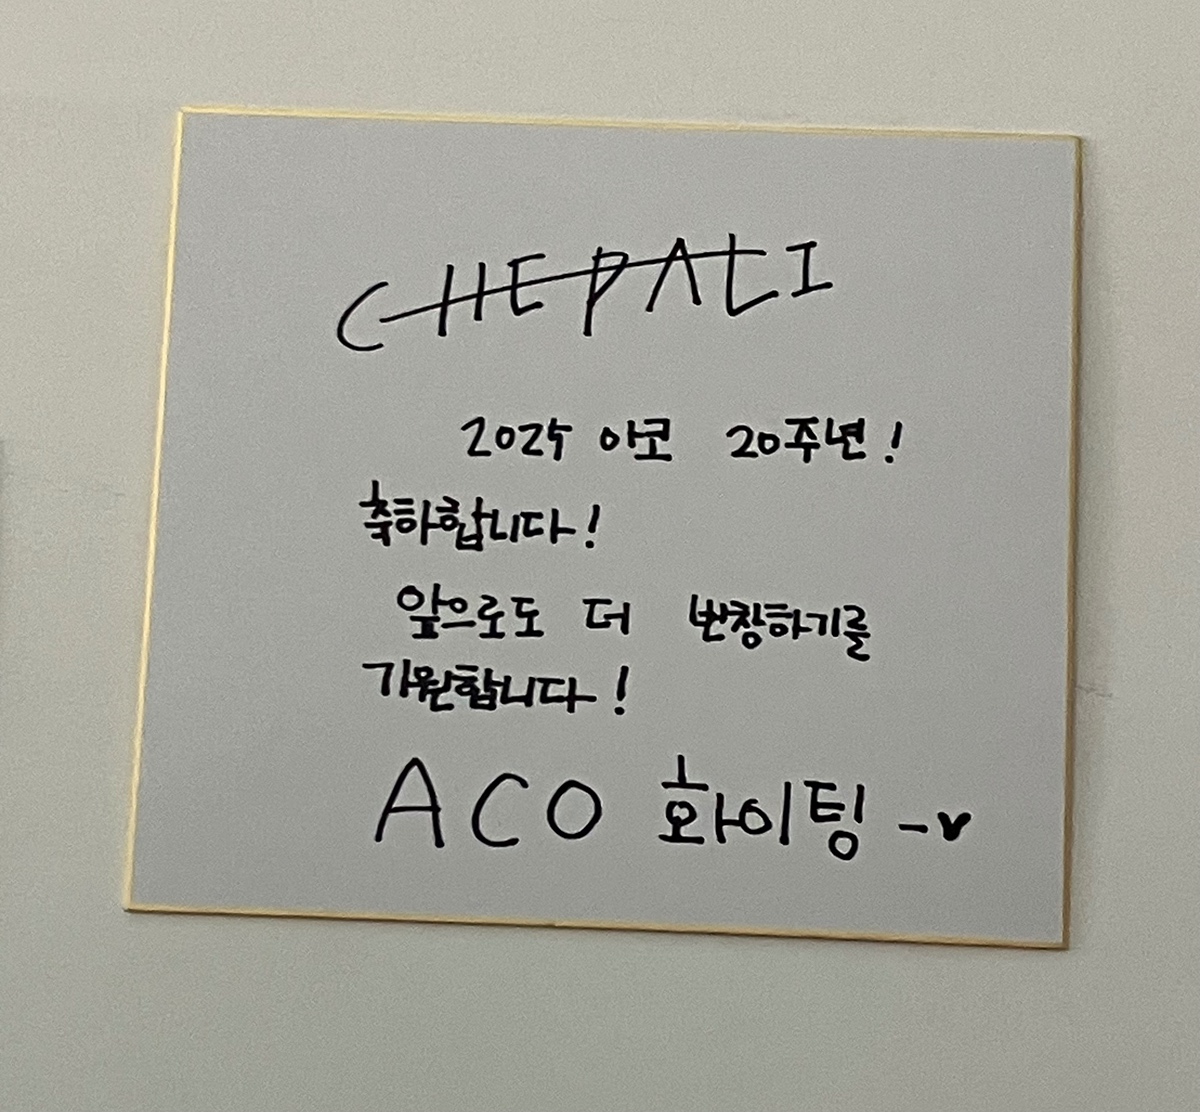 CHEPALI
2025 아코 20주년!
축하합니다!
앞으로도 더 번창하기를
기원합니다!
ACO 화이팅 -♥